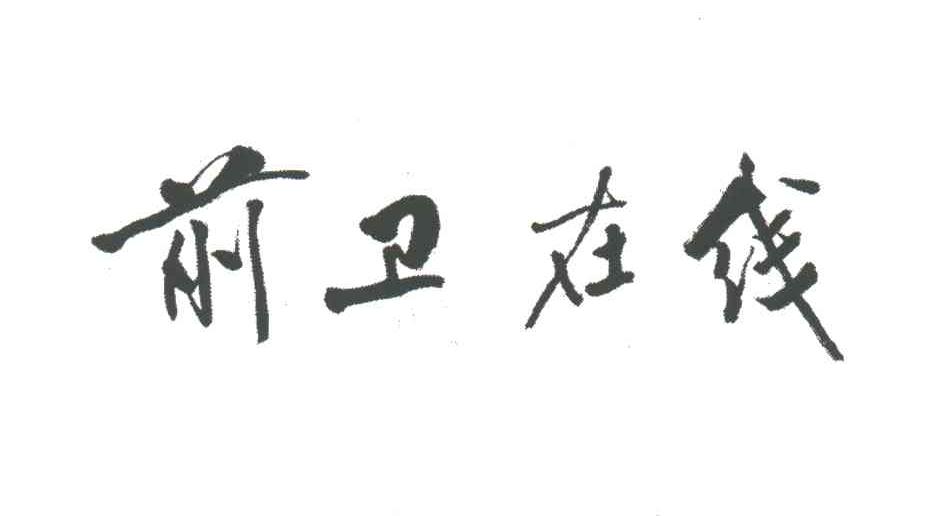 前卫在线